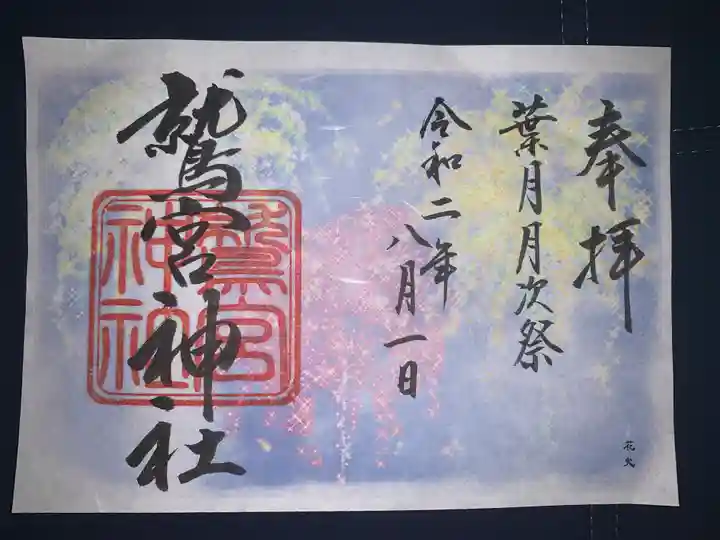 奉拝
葉月月次祭
令和二年
八月一日
鷲宮神社
鷲宮
神社
花火